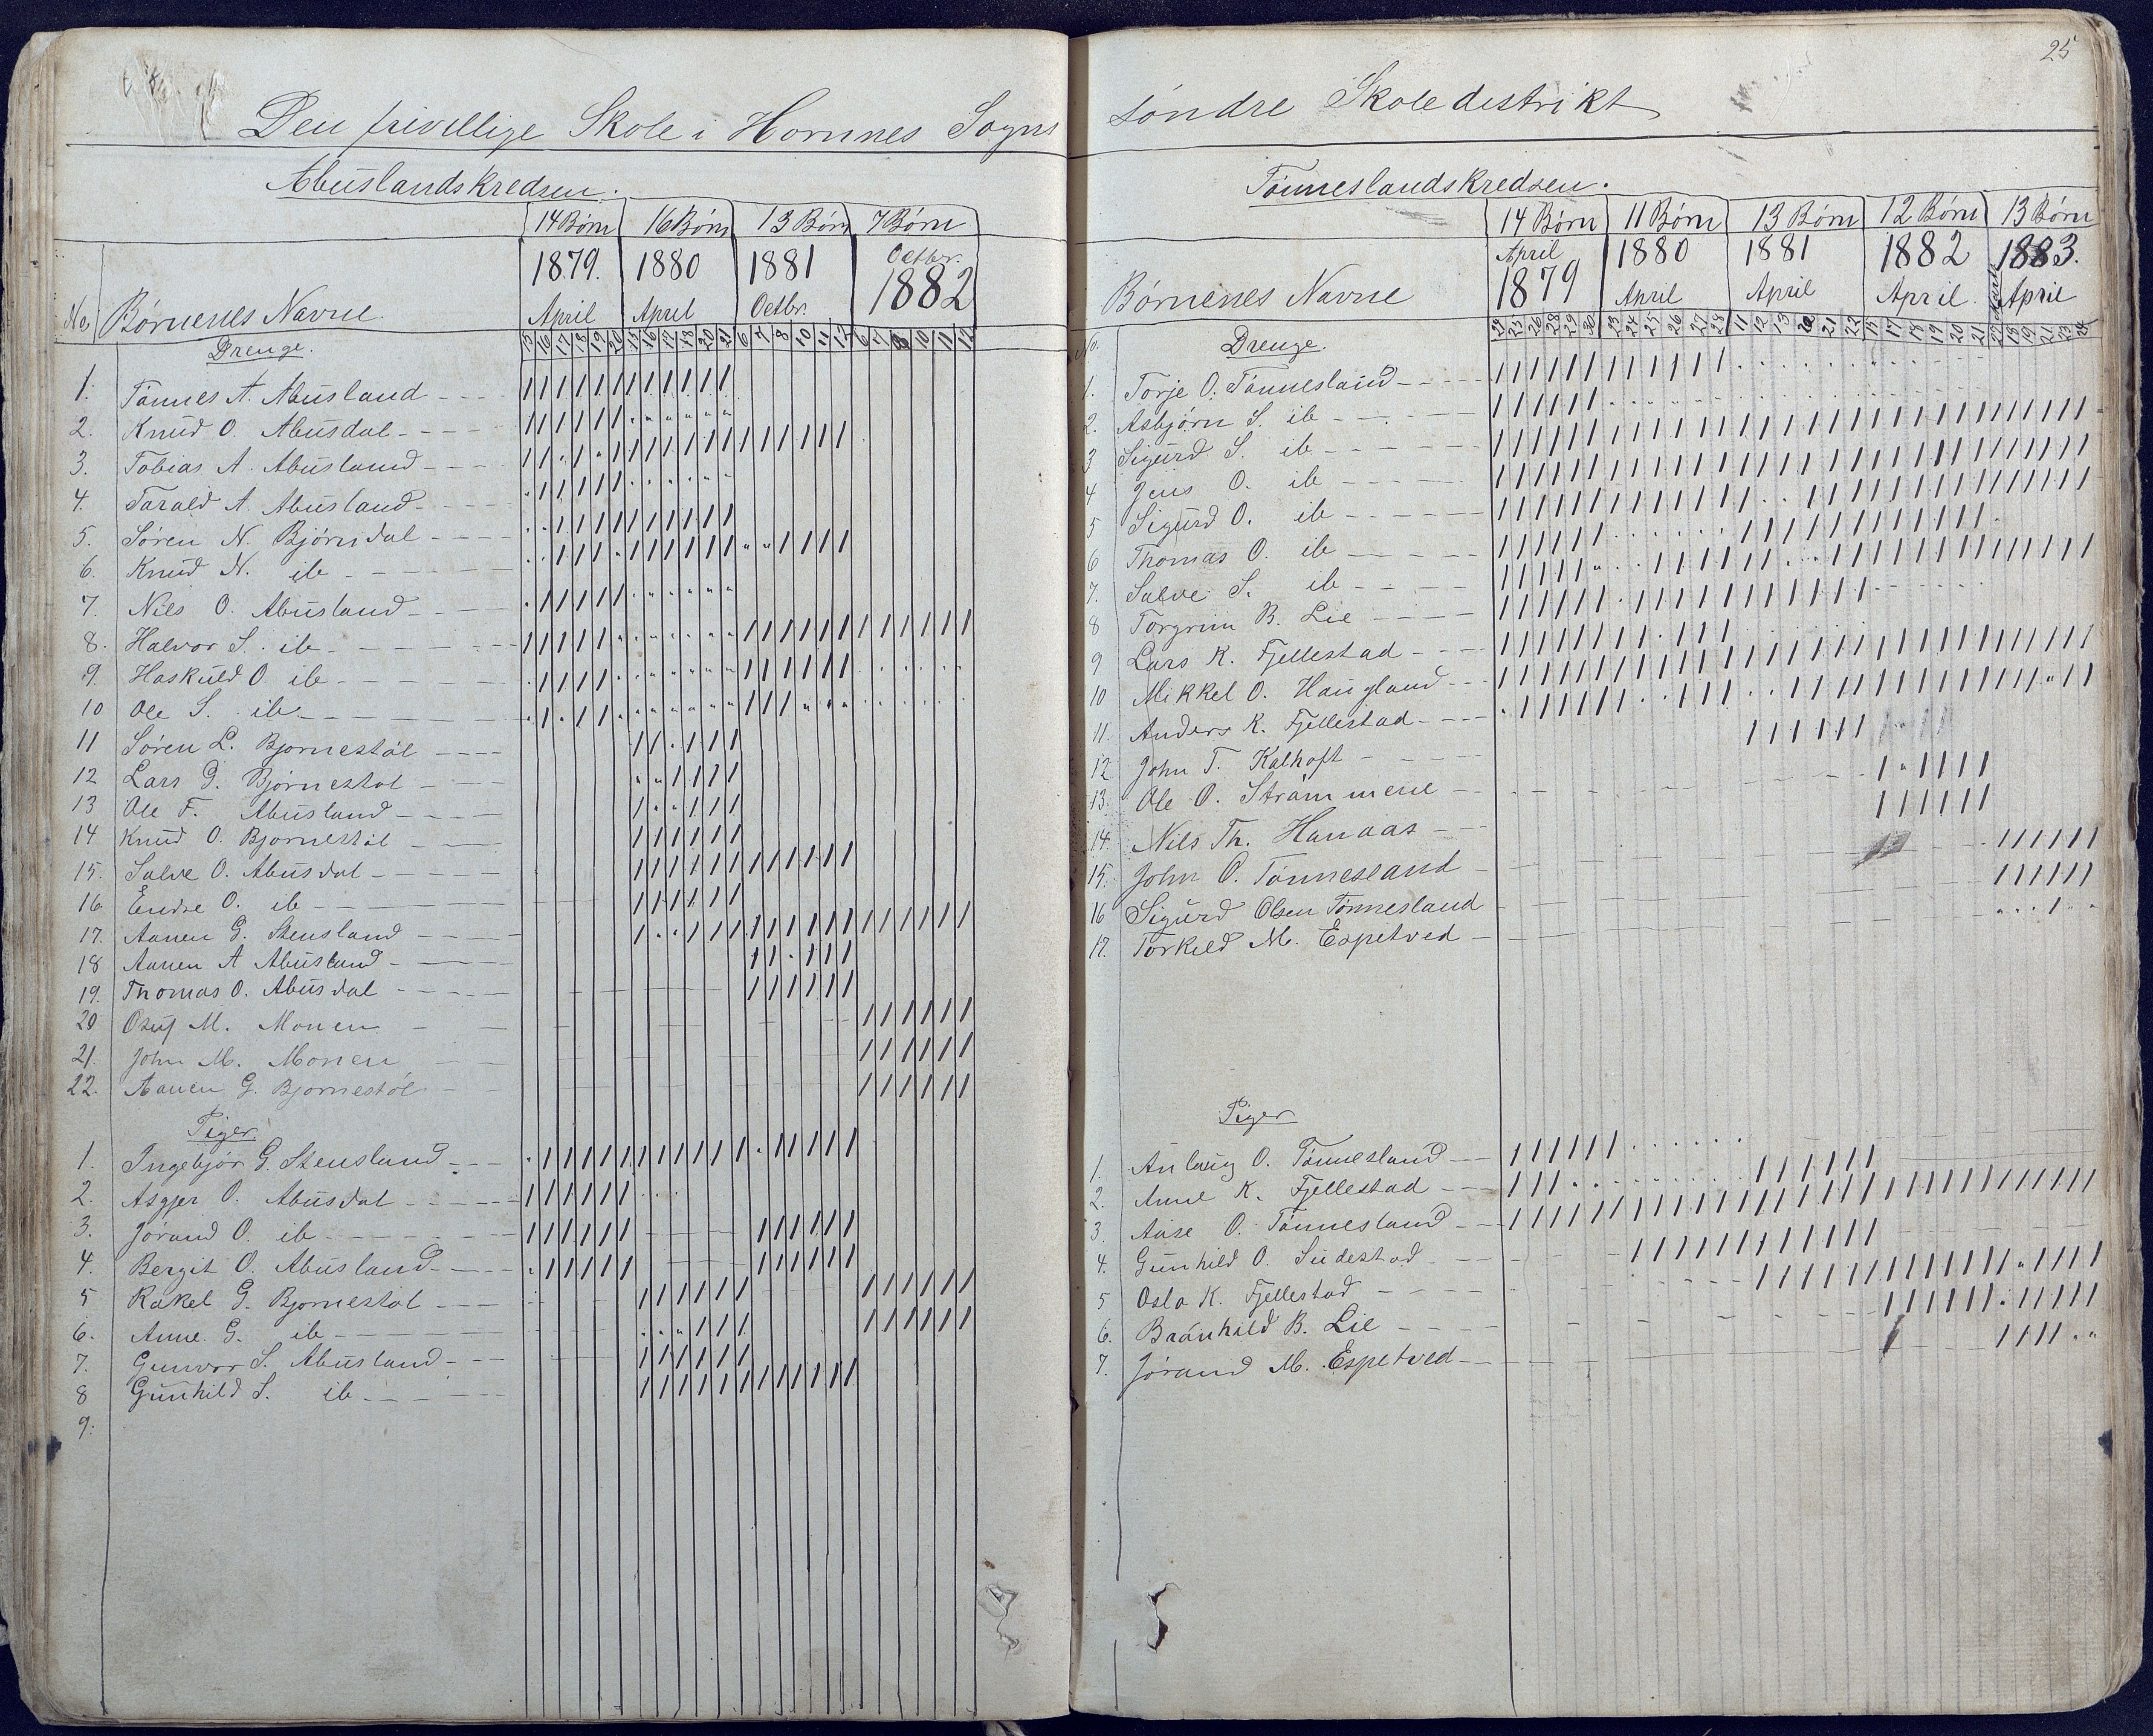 25
Den frivillige Skole i Hornnes Sogns søndre Skoledistrikt
Abuslandskredsen.
14 Børn 16 Børn 13 Børn 7 Børn
1879. 1880 1881 Octbr. 1882
April April Octbr.
No. Børnenes Navne.
15 16 17 18 19 20 15 16 17 18 20 21 6 7 8 10 11 12 6 7 8 10 11 12
Drenge.
1. Tønnes A. Abusland
2. Knud O. Abusdal
3. Tobias A. Abusland
4. Tarald A. Abusland
5. Søren N. Bjørndal
6. Knud N. ib
7. Nils O. Abusland
8. Halvor S. ib
9. Haskuld O. ib
10 Ole S. ib
11 Søren L. Bjornestøl
12 Lars G. Bjørnestøl
13 Ole F. Abusland
14 Knud O. Bjornestøl
15. Salve O. Abusdal
16 Endre O. ib
17. Aanen G. Stensland
18 Aanen A Abusland
19. Thomas O. Abusdal
20 Osuf M. Monen
21. John M. Monen
22. Aanen G. Bjornestøl
Piger.
1. Ingebjør G. Stensland
2. Asgjer O. Abusdal
3. Jørand O. ib
4. Bergit O. Abusland
5 Rakel G. Bjornestøl
6. Anne G. ib
7. Gunvor S. Abusland
8 Gunhild S. ib
9.
Tønneslandskredsen.
14 Børn 11 Børn 13 Børn 12 Børn 13 Børn
April 1879 1880 1881 1882 1883.
April April April April
Børnenes Navne
No. Drenge.
1. Torje O. Tønnesland
2. Asbjørn S. ib
3 Sigurd S. ib
4 Jens O. ib
5 Sigurd O. ib
6 Thomas O. ib
7. Salve S. ib
8 Torgrim B. Lie
9 Lars K. Fjellestad
10 Mikkel O. Haugland
11. Anders K. Fjellestad
12 John T. Kalhoft
13. Ole O. Strømmene
14. Nils Th. Hanaas
15. John O. Tønnesland
16 Sigurd Olsen Tønnesland
17. Torkild M. Espetved
Piger
1. Anlaug O. Tønnesland
2. Anne K. Fjellestad
3. Aase O. Tønnesland
4. Gunhild O. Sudestad
5 Oslo K. Fjellestad
6. Brønhild B. Lie
7. Jørand M. Espetved